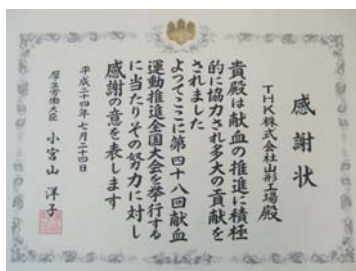 感謝状
THK株式会社山形工場殿
貴殿は献血の推進に積極
的に協力され多大の貢献を
されました
よつてここに第四十八回献血
運動推進全国大会を挙行する
に当たりその努力に対し
感謝の意を表します
平成二十四年七月二十四日
厚生労働大臣 小宮山洋子